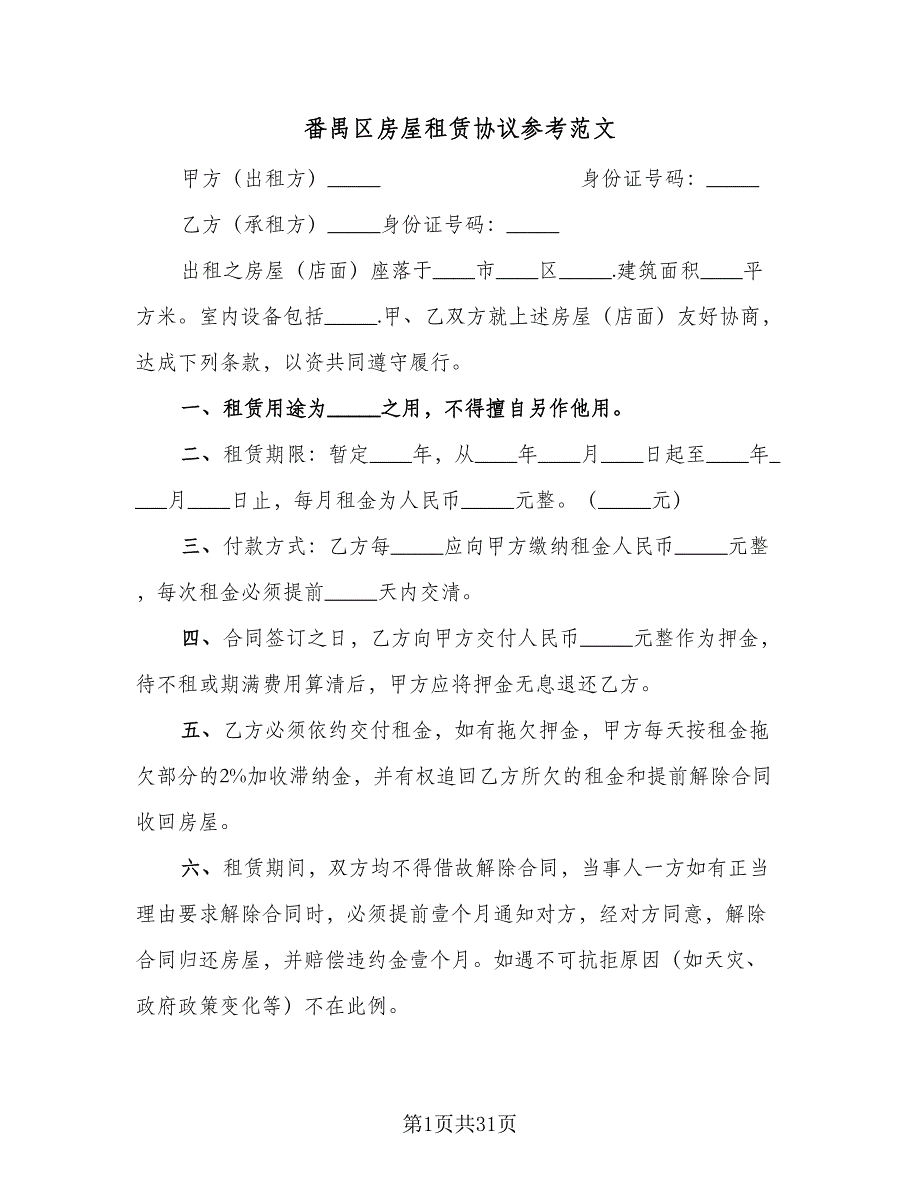 番禺区房屋租赁协议参考范文
甲方（出租方）_____ 身份证号码：_____
乙方（承租方）_____身份证号码：_____
出租之房屋（店面）座落于____市____区_____.建筑面积____平
方米。室内设备包括_____.甲、乙双方就上述房屋（店面）友好协商，
达成下列条款，以资共同遵守履行。
一、租赁用途为_____之用，不得擅自另作他用。
二、租赁期限：暂定____年，从____年____月____日起至____年_
___月____日止，每月租金为人民币_____元整。（_____元）
三、付款方式：乙方每_____应向甲方缴纳租金人民币_____元整
，每次租金必须提前_____天内交清。
四、合同签订之日，乙方向甲方交付人民币_____元整作为押金，
待不租或期满费用算清后，甲方应将押金无息退还乙方。
五、乙方必须依约交付租金，如有拖欠押金，甲方每天按租金拖
欠部分的2%加收滞纳金，并有权追回乙方所欠的租金和提前解除合同
收回房屋。
六、租赁期间，双方均不得借故解除合同，当事人一方如有正当
理由要求解除合同时，必须提前壹个月通知对方，经对方同意，解除
合同归还房屋，并赔偿违约金壹个月。如遇不可抗拒原因（如天灾、
政府政策变化等）不在此例。
第1页共31页